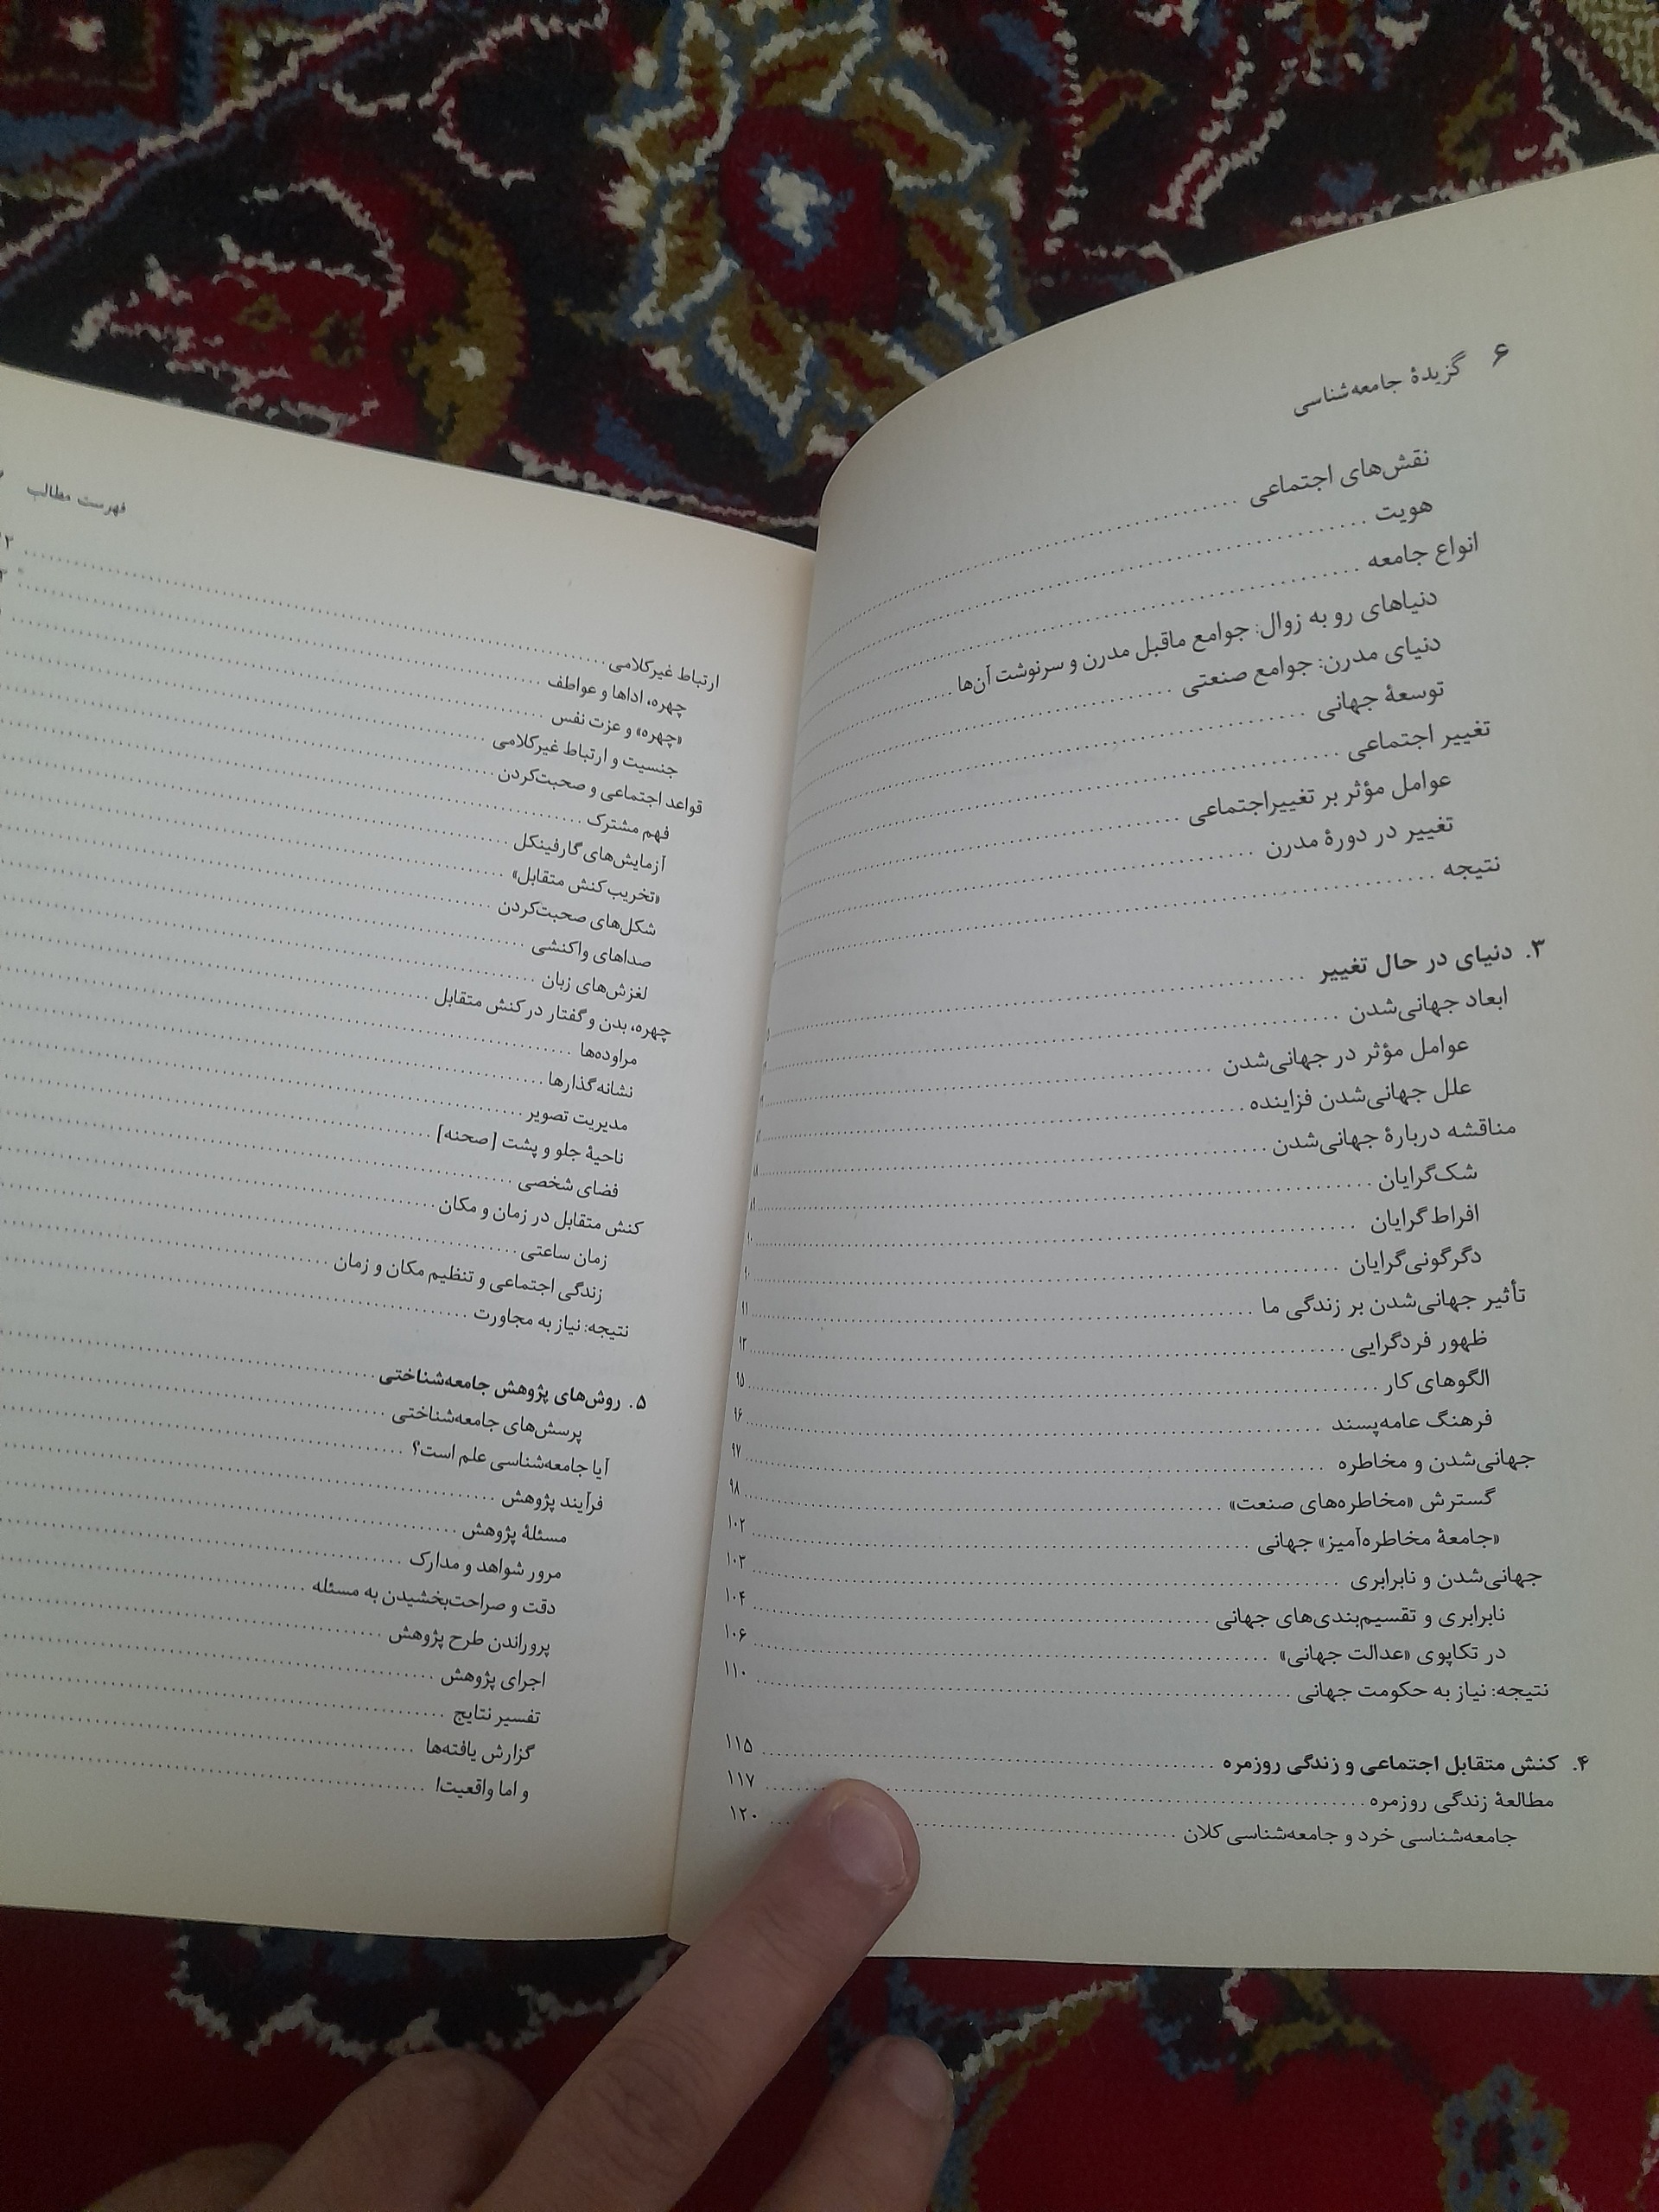 ۶ گزیدهٔ جامعه‌شناسی
نقش‌های اجتماعی
هویت
انواع جامعه
دنیاهای رو به زوال: جوامع ماقبل مدرن و سرنوشت آن‌ها
دنیای مدرن: جوامع صنعتی
توسعهٔ جهانی
تغییر اجتماعی
عوامل مؤثر بر تغییراجتماعی
تغییر در دورهٔ مدرن
نتیجه
۳. دنیای در حال تغییر
ابعاد جهانی‌شدن
عوامل مؤثر در جهانی‌شدن
علل جهانی‌شدن فزاینده
مناقشه دربارهٔ جهانی‌شدن
شک‌گرایان
افراط‌گرایان
دگرگونی‌گرایان
تأثیر جهانی‌شدن بر زندگی ما ۹۱
ظهور فردگرایی ۹۲
الگوهای کار ۹۵
فرهنگ عامه‌پسند ۹۶
جهانی‌شدن و مخاطره ۹۷
گسترش «مخاطره‌های صنعت» ۹۸
«جامعهٔ مخاطره‌آمیز» جهانی ۱۰۲
جهانی‌شدن و نابرابری ۱۰۳
نابرابری و تقسیم‌بندی‌های جهانی ۱۰۴
در تکاپوی «عدالت جهانی» ۱۰۶
نتیجه: نیاز به حکومت جهانی ۱۱۰
۴. کنش متقابل اجتماعی و زندگی روزمره ۱۱۵
مطالعهٔ زندگی روزمره ۱۱۷
جامعه‌شناسی خرد و جامعه‌شناسی کلان ۱۲۰
فهرست مطالب
ارتباط غیرکلامی
چهره، اداها و عواطف
«چهره» و عزت نفس
جنسیت و ارتباط غیرکلامی
قواعد اجتماعی و صحبت‌کردن
فهم مشترک
آزمایش‌های گارفینکل
«تخریب کنش متقابل»
شکل‌های صحبت‌کردن
صداهای واکنشی
لغزش‌های زبان
چهره، بدن و گفتار در کنش متقابل
مراوده‌ها
نشانه‌گذارها
مدیریت تصویر
ناحیهٔ جلو و پشت [صحنه]
فضای شخصی
کنش متقابل در زمان و مکان
زمان ساعتی
زندگی اجتماعی و تنظیم مکان و زمان
نتیجه: نیاز به مجاورت
۵. روش‌های پژوهش جامعه‌شناختی
پرسش‌های جامعه‌شناختی
آیا جامعه‌شناسی علم است؟
فرآیند پژوهش
مسئلهٔ پژوهش
مرور شواهد و مدارک
دقت و صراحت‌بخشیدن به مسئله
پروراندن طرح پژوهش
اجرای پژوهش
تفسیر نتایج
گزارش یافته‌ها
و اما واقعیت!